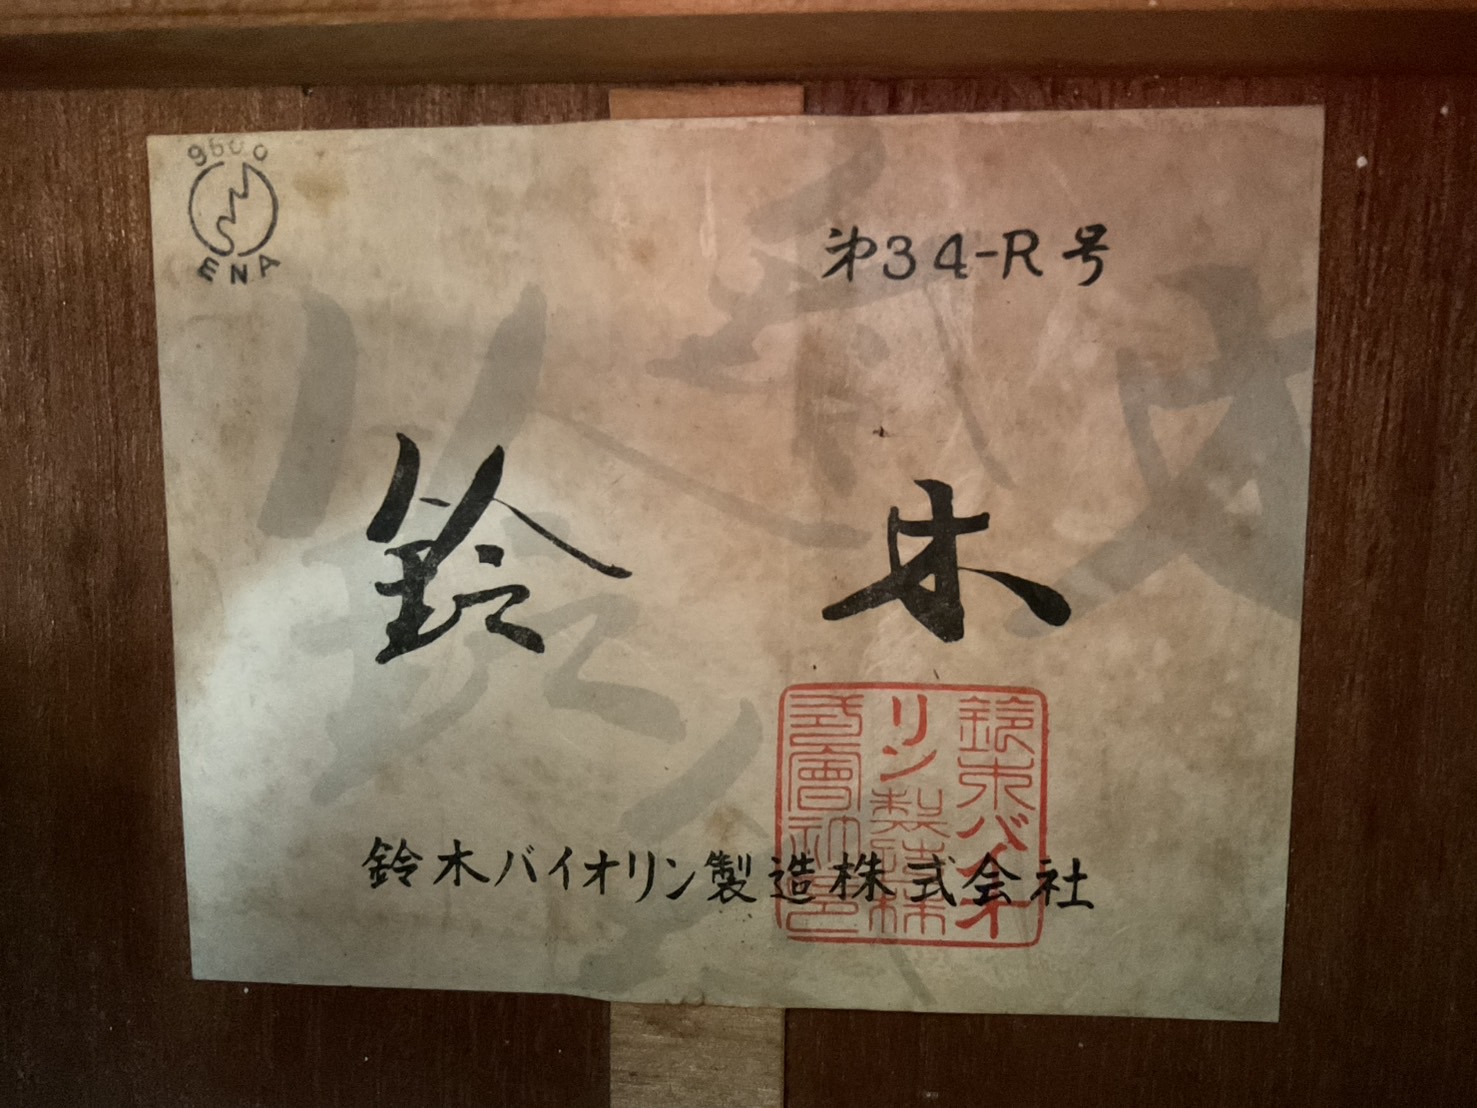 ENA
第34-R号
鈴木
鈴木バイオリン製造株式会社
鈴木バイオ
リン製造株
式會社印